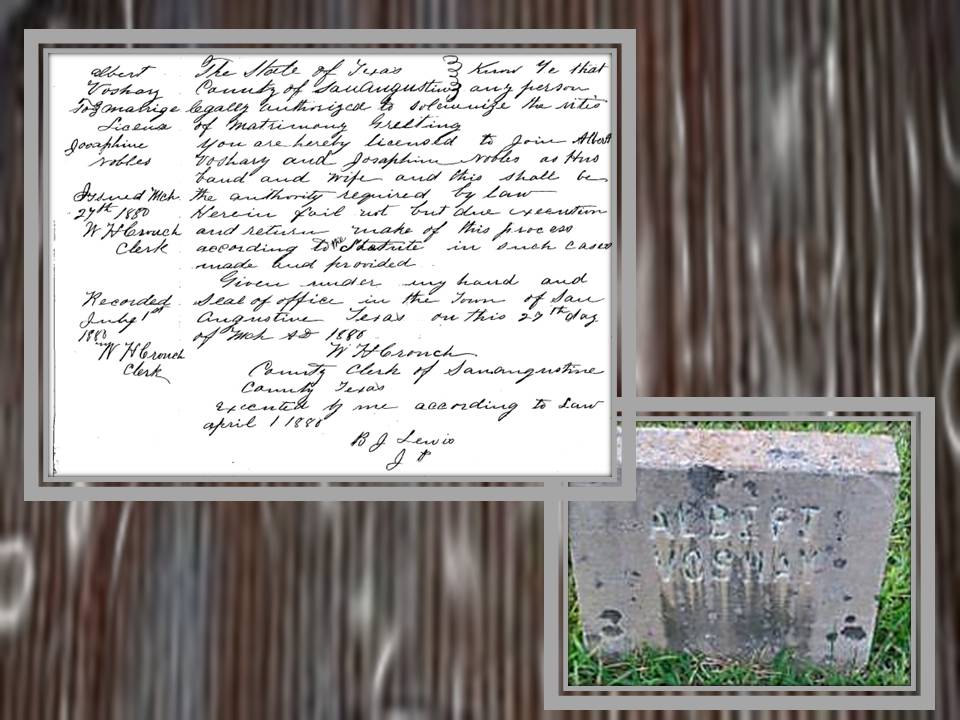 Albert
Voshay
To } marige
Licens
Josaphine
Nobles
Issued Mch
27th 1880
W H Crouch
Clerk
Recorded
July 1st
1880
W H Crouch
Clerk
The State of Texas } Know Ye that
County of Sanaugustine } any person
legally authorized to solemnize the rites
of Matrimony Greeting
You are hereby licensed to join Albert
Voshary and Josaphine Nobles as Hus
band and wife and this shall be
the authority required by law
Herein fail not but due execution
and return make of this process
according to the Statute in such cases
made and provided.
Given under my hand and
Seal of office in the Town of San
Augustine Texas on this 27th day
of Mch AD 1880
W H Crouch
County Clerk of Sanaugustine
County Texas
Executed by me according to Law
april 1 1880
B J Lewis
J P
ALBIFT
VOSHAY